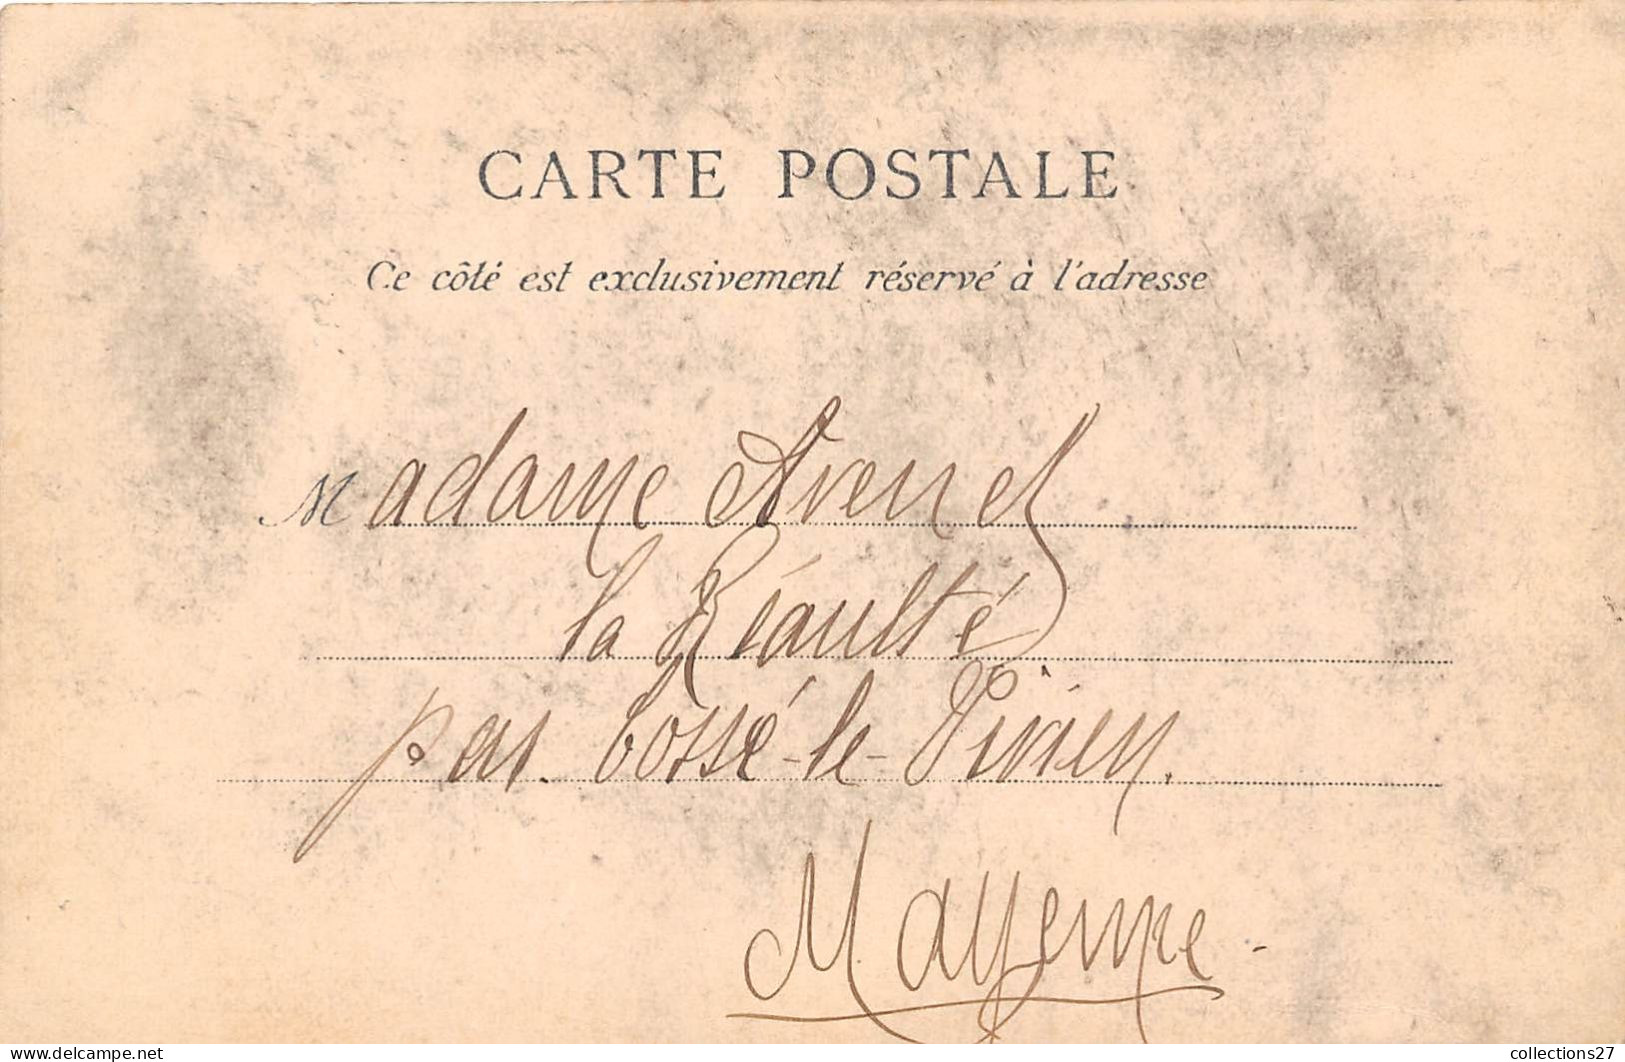 CARTE POSTALE
Ce côté est exclusivement réservé à l'adresse
Madame Avenel
la Réaulté
par Cossé-le-Vivien.
Mayenne-
www.delcampe.net
collections27